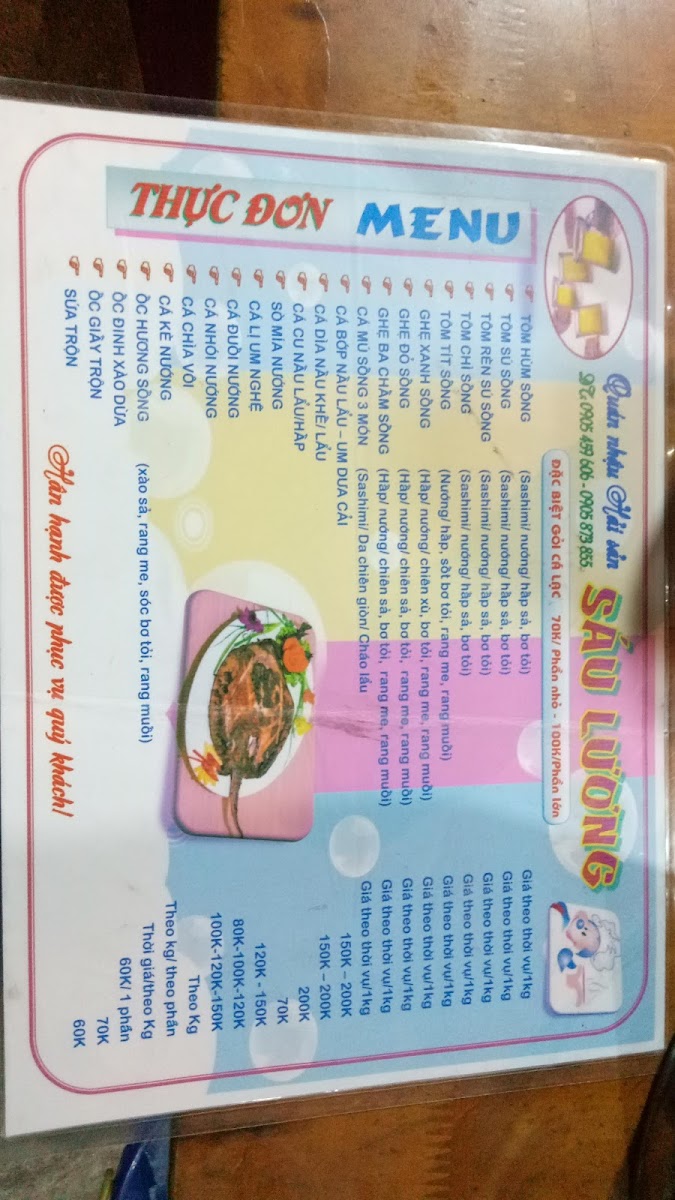 Quán nhậu Hải sản
SÁU LƯƠNG
ĐT: 0905 459 606 - 0905 873 855
ĐẶC BIỆT GỎI CÁ LẠC 70K/ Phần nhỏ - 100K/Phần lớn
THỰC ĐƠN MENU
TÔM HÙM SỐNG (Sashimi/ nướng/ hấp sả, bơ tỏi) Giá theo thời vụ/1kg
TÔM SÚ SỐNG (Sashimi/ nướng/ hấp sả, bơ tỏi) Giá theo thời vụ/1kg
TÔM RẾN SÚ SỐNG (Sashimi/ nướng/ hấp sả, bơ tỏi) Giá theo thời vụ/1kg
TÔM CHÌ SỐNG (Sashimi/ nướng/ hấp sả, bơ tỏi) Giá theo thời vụ/1kg
TÔM TÍT SỐNG (Nướng/ hấp, sốt bơ tỏi, rang me, rang muối) Giá theo thời vụ/1kg
GHẸ XANH SỐNG (Hấp/ nướng/ chiên xù, bơ tỏi, rang me, rang muối) Giá theo thời vụ/1kg
GHẸ ĐỎ SỐNG (Hấp/ nướng/ chiên sả, bơ tỏi, rang me, rang muối) Giá theo thời vụ/1kg
GHẸ BA CHẤM SỐNG (Hấp/ nướng/ chiên sả, bơ tỏi, rang me, rang muối) Giá theo thời vụ/1kg
CÁ MÚ SỐNG 3 MÓN (Sashimi/ Da chiên giòn/ Cháo lẩu Giá theo thời vụ/1kg
CÁ BỚP NẤU LẨU – UM DƯA CẢI 150K – 200K
CÁ DÌA NẤU KHẾ/ LẨU 150K – 200K
CÁ CU NẤU LẨU/HẤP 200K
SÒ MIA NƯỚNG 70K
CÁ LỊ UM NGHỆ 120K - 150K
CÁ ĐUỐI NƯỚNG 80K-100K-120K
CÁ NHÓI NƯỚNG 100K-120K-150K
CÁ CHIA VÔI Theo Kg
CÁ KÈ NƯỚNG Theo kg/ theo phần
ỐC HƯƠNG SỐNG (xào sả, rang me, sốc bơ tỏi, rang muối) Thời giá/theo Kg
ỐC ĐINH XÀO DỪA 60K/ 1 phần
ỐC GIẤY TRỘN 70K
SỨA TRỘN 60K
Hân hạnh được phục vụ quý khách!